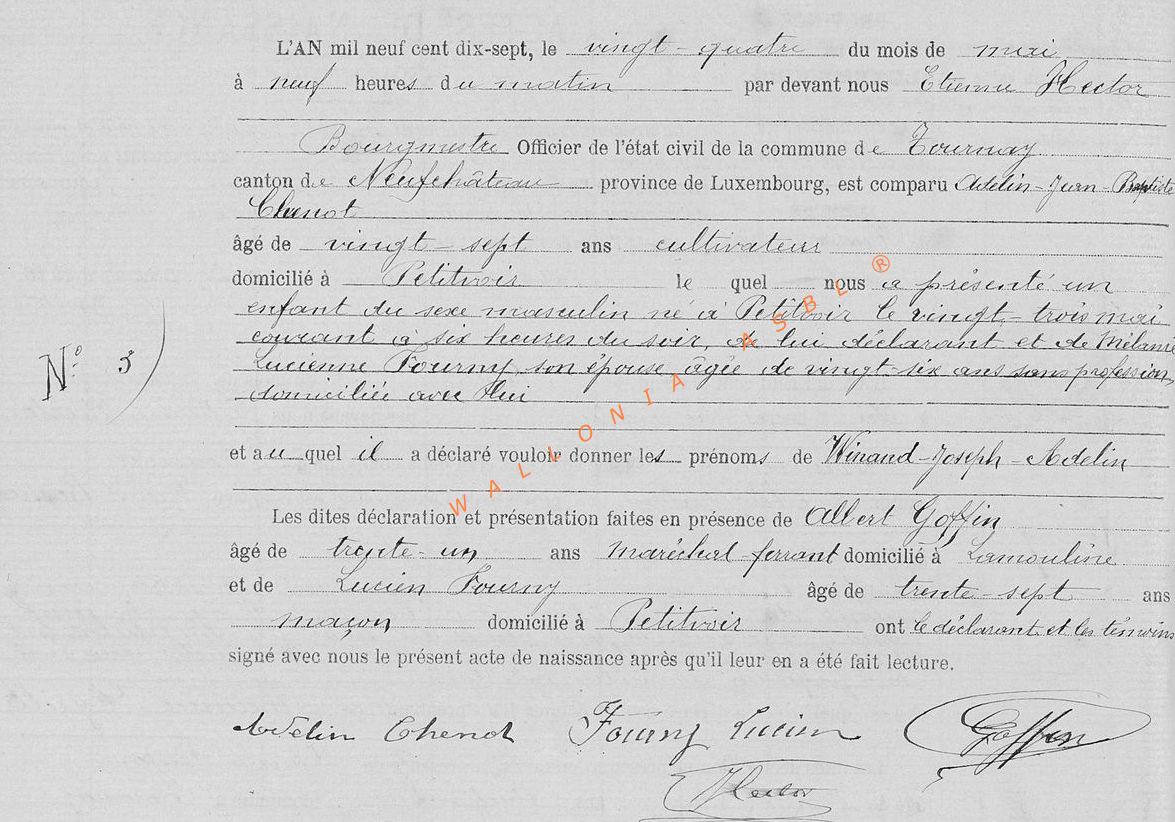 L'AN mil neuf cent dix-sept, le vingt-quatre du mois de mai
à neuf heures du matin par devant nous Etienne Hector
Bourgmestre Officier de l'état civil de la commune de Tournay
canton de Neufchâteau province de Luxembourg, est comparu Adelin-Jean-Baptiste
Chenot
âgé de vingt-sept ans cultivateur
domicilié à Petitvoir le quel nous a présenté un
enfant du sexe masculin né à Petitvoir le vingt-trois mai
courant à six heures du soir, de lui déclarant et de Mélanie
Lucienne Fourny, son épouse âgée de vingt-six ans sans profession,
domiciliée avec lui
N° 3
et au quel il a déclaré vouloir donner les prénoms de Winand-Joseph-Adelin
Les dites déclaration et présentation faites en présence de Albert Goffin
âgé de trente-un ans maréchal-ferrant domicilié à Lamouline
et de Lucien Fourny âgé de trente-sept ans
maçon domicilié à Petitvoir ont le déclarant et les témoins
signé avec nous le présent acte de naissance après qu'il leur en a été fait lecture.
Adelin Chenot Fourny Lucien Goffin
Hector
WALLONIA ASBL ®